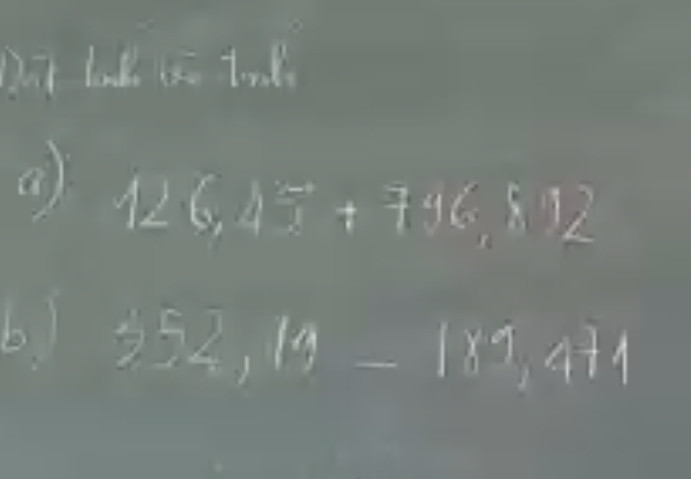 Đặt tính rồi tính
a) 126,45 + 796,892
b) 352,19 - 189,471